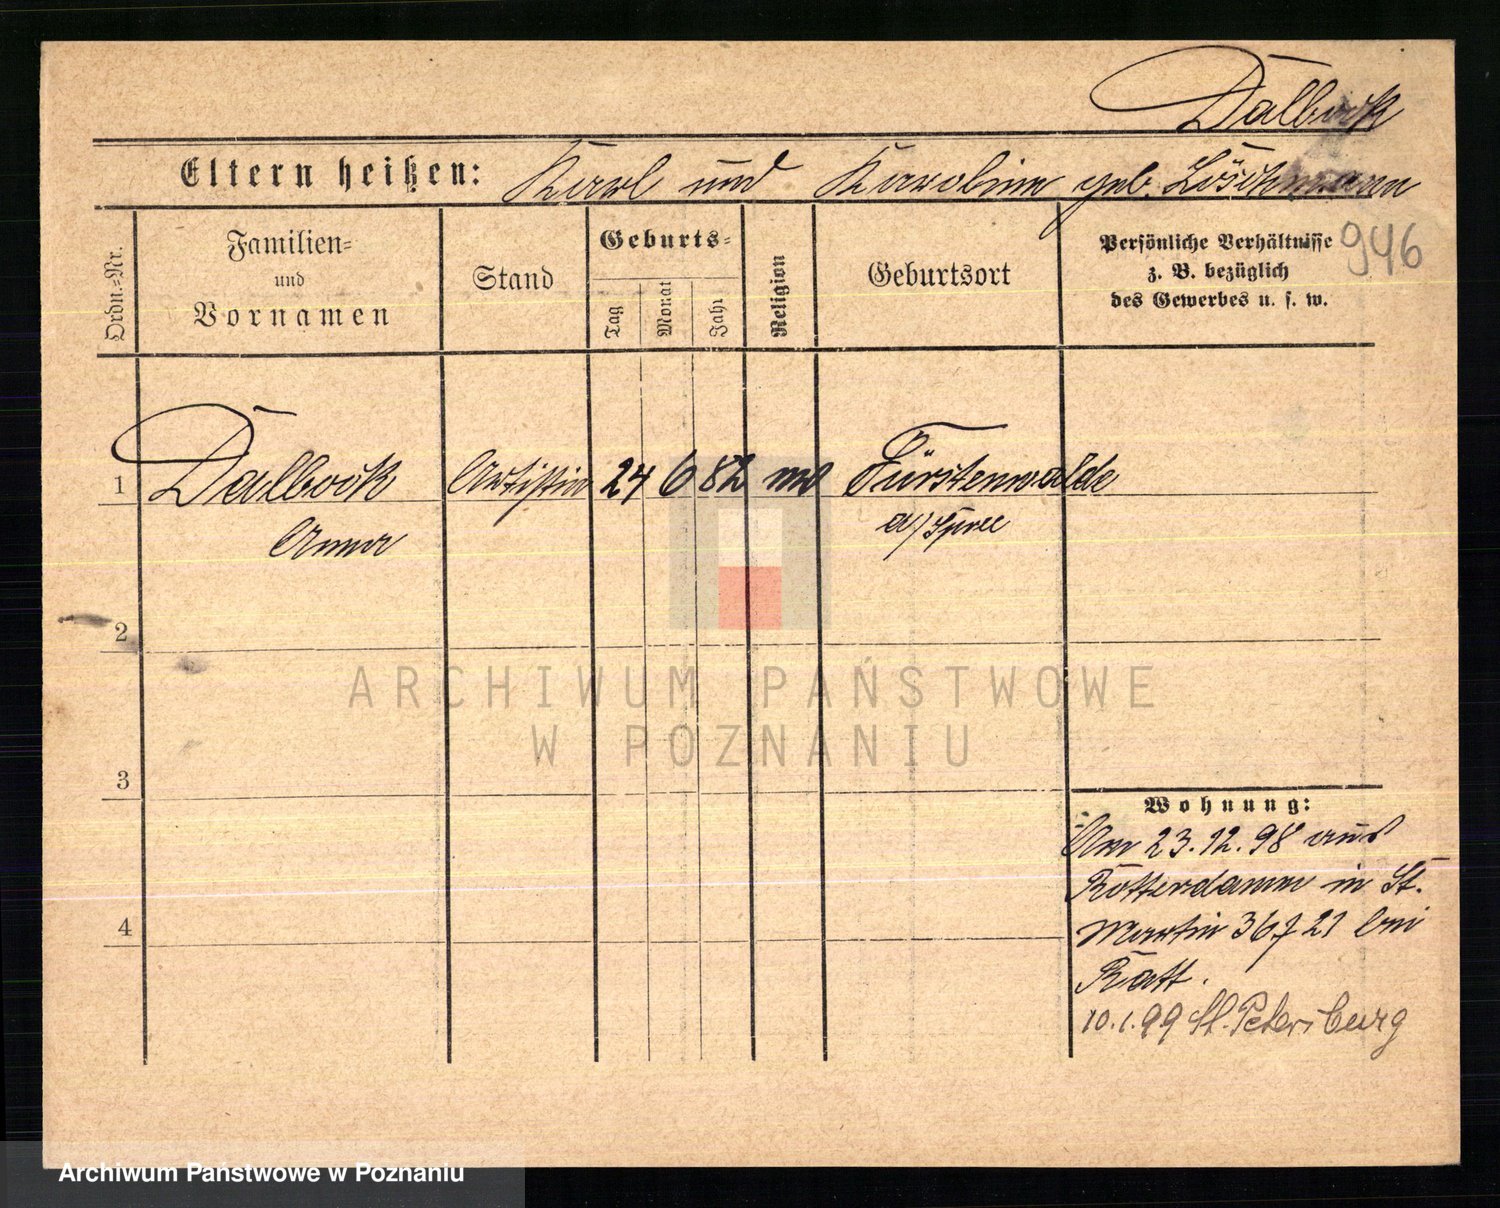 Dalbock
Eltern heißen: Karl und Karoline geb. Löschmann
Ordn.-Nr.
Familien-
und
Vornamen
Stand
Geburts-
Tag
Monat
Jahr
Religion
Geburtsort
Persönliche Verhältnisse
z. B. bezüglich
des Gewerbes u. s. w.
946
1 Dalbock Artistin 24 6 82 Fürstenwalde
Anna a/Spree
2
3
4
ARCHIWUM PAŃSTWOWE
W POZNANIU
Wohnung:
Am 23.12.98 aus
Rotterdamm in St.
Martin 36 f 21 bei
Ratt.
10.1.99 St. Petersburg
Archiwum Państwowe w Poznaniu